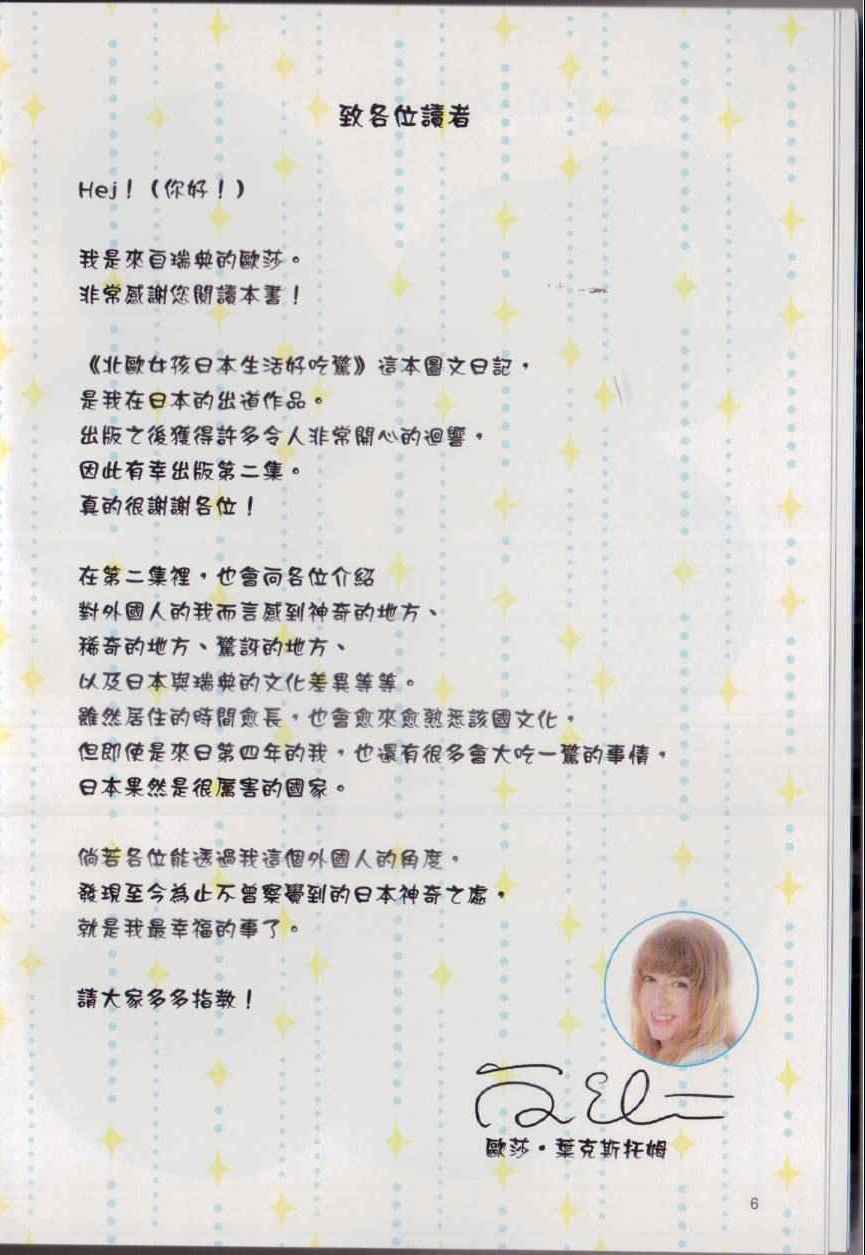 致各位讀者
Hej！（你好！）
我是來自瑞典的歐莎。
非常感謝您閱讀本書！
《北歐女孩日本生活好吃驚》這本圖文日記，
是我在日本的出道作品。
出版之後獲得許多令人非常開心的迴響，
因此有幸出版第二集。
真的很謝謝各位！
在第二集裡，也會向各位介紹
對外國人的我而言感到神奇的地方、
稀奇的地方、驚訝的地方、
以及日本與瑞典的文化差異等等。
雖然居住的時間愈長，也會愈來愈熟悉該國文化，
但即使是來日第四年的我，也還有很多會大吃一驚的事情，
日本果然是很厲害的國家。
倘若各位能透過我這個外國人的角度，
發現至今為止不曾察覺到的日本神奇之處，
就是我最幸福的事了。
請大家多多指教！
歐莎・葉克斯托姆
6